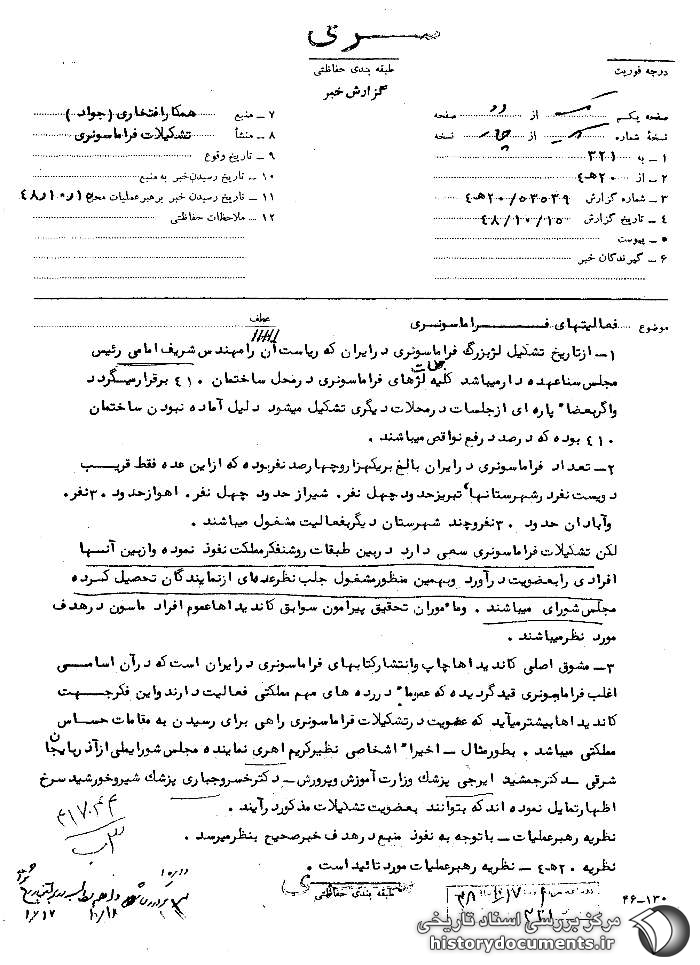 سری
طبقه بندی حفاظتی
گزارش خبر
درجه فوریت
صفحه یکم از دو صفحه
نسخه شماره یک از چهار نسخه
۱ ـ به ۳۲۱
۲ ـ از ۲۰هـ۴
۳ ـ شماره گزارش ۲۰/۵۳۵۳۹هـ۴
۴ ـ تاریخ گزارش ۴۸/۱۰/۱۵
۵ ـ پیوست
۶ ـ گیرندگان خبر
۷ ـ منبع همکار افتخاری (جواد)
۸ ـ منشأ تشکیلات فراماسونری
۹ ـ تاریخ وقوع
۱۰ ـ تاریخ رسیدن خبر به منبع
۱۱ ـ تاریخ رسیدن خبر به رهبر عملیات
۱۲ ـ ملاحظات حفاظتی
موضوع فعالیتهای فراماسونری عطف
۱ـ از تاریخ تشکیل لژ بزرگ فراماسونری در ایران که ریاست آن را مهندس شریف امامی رئیس
مجلس سنا عهده دار میباشد جلسات کلیه لژهای فراماسونری در محل ساختمان ۴۱۰ برقرار میگردد
واگر بعضا" پاره ای از جلسات در محلات دیگری تشکیل میشود دلیل آماده نبودن ساختمان
۴۱۰ بوده که در صدد رفع نواقص میباشند .
۲ـ تعداد فراماسونری در ایران بالغ بر یکهزار و چهار صد نفر بوده که از این عده فقط قریب
دویست نفر در شهرستانها، تبریز حدود چهل نفر. شیراز حدود چهل نفر. اهواز حدود ۳۰نفر.
وآبادان حدود ۳۰نفر و چند شهرستان دیگر بفعالیت مشغول میباشند .
لکن تشکیلات فراماسونری سعی دارد در بین طبقات روشنفکر مملکت نفوذ نموده و از بین آنها
افرادی را بعضویت درآورد و بهمین منظور مشغول جلب نظر عده‌ای از نمایندگان تحصیل کرده
مجلس شورای میباشند . و مأموران تحقیق پیرامون سوابق کاندیداها عموم افراد ماسون در هدف
مورد نظر میباشند .
۳ـ مشوق اصلی کاندیداها چاپ و انتشار کتابهای فراماسونری در ایران است که در آن اسامی
اغلب فراماسونری قید گردیده که عموما" در رده های مهم مملکتی فعالیت دارند و این فکر جهت
کاندیداها بیشتر میآید که عضویت در تشکیلات فراماسونری راهی برای رسیدن به مقامات حساس
مملکتی میباشد . بطور مثال ـ اخیرا" اشخاصی نظیر کریم اهری نماینده مجلس شورایملی از آذربایجان
شرقی ـ دکتر جمشید ایرجی پزشک وزارت آموزش و پرورش ـ دکتر خسرو جباری پزشک شیر و خورشید سرخ
اظهار تمایل نموده اند که بتوانند بعضویت تشکیلات مذکور درآیند .
نظریه رهبر عملیات ـ با توجه به نفوذ منبع در هدف خبر صحیح بنظر میرسد .
نظریه ۲۰هـ۴ ـ نظریه رهبر عملیات مورد تائید است .
طبقه بندی حفاظتی
۴۱۷۰۴۴
۳۲۱
۴۶-۱۳۰
مرکز بررسی اسناد تاریخی
historydocuments.ir